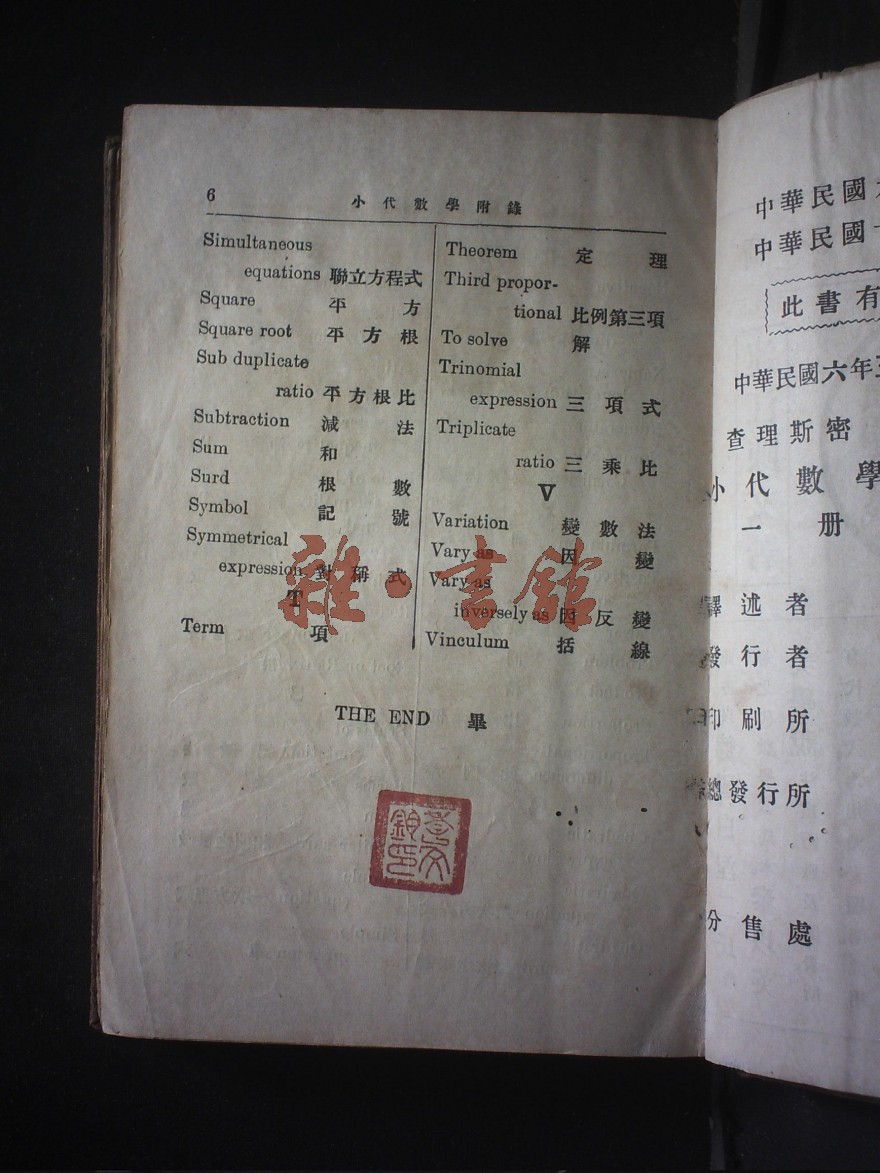 6 小代數學附錄
Simultaneous
equations 聯立方程式
Square 平方
Square root 平方根
Sub duplicate
ratio 平方根比
Subtraction 減法
Sum 和
Surd 根數
Symbol 記號
Symmetrical
expression 對稱式
T
Term 項
Theorem 定理
Third propor-
tional 比例第三項
To solve 解
Trinomial
expression 三項式
Triplicate
ratio 三乘比
V
Variation 變數法
Vary as 因變
Vary as
inversely as 因反變
Vinculum 括線
THE END 畢
雜·書館
中華民國
中華民國
此書有
中華民國六年
查理斯密
小代數學
一册
譯述者
發行者
印刷所
總發行所
分售處